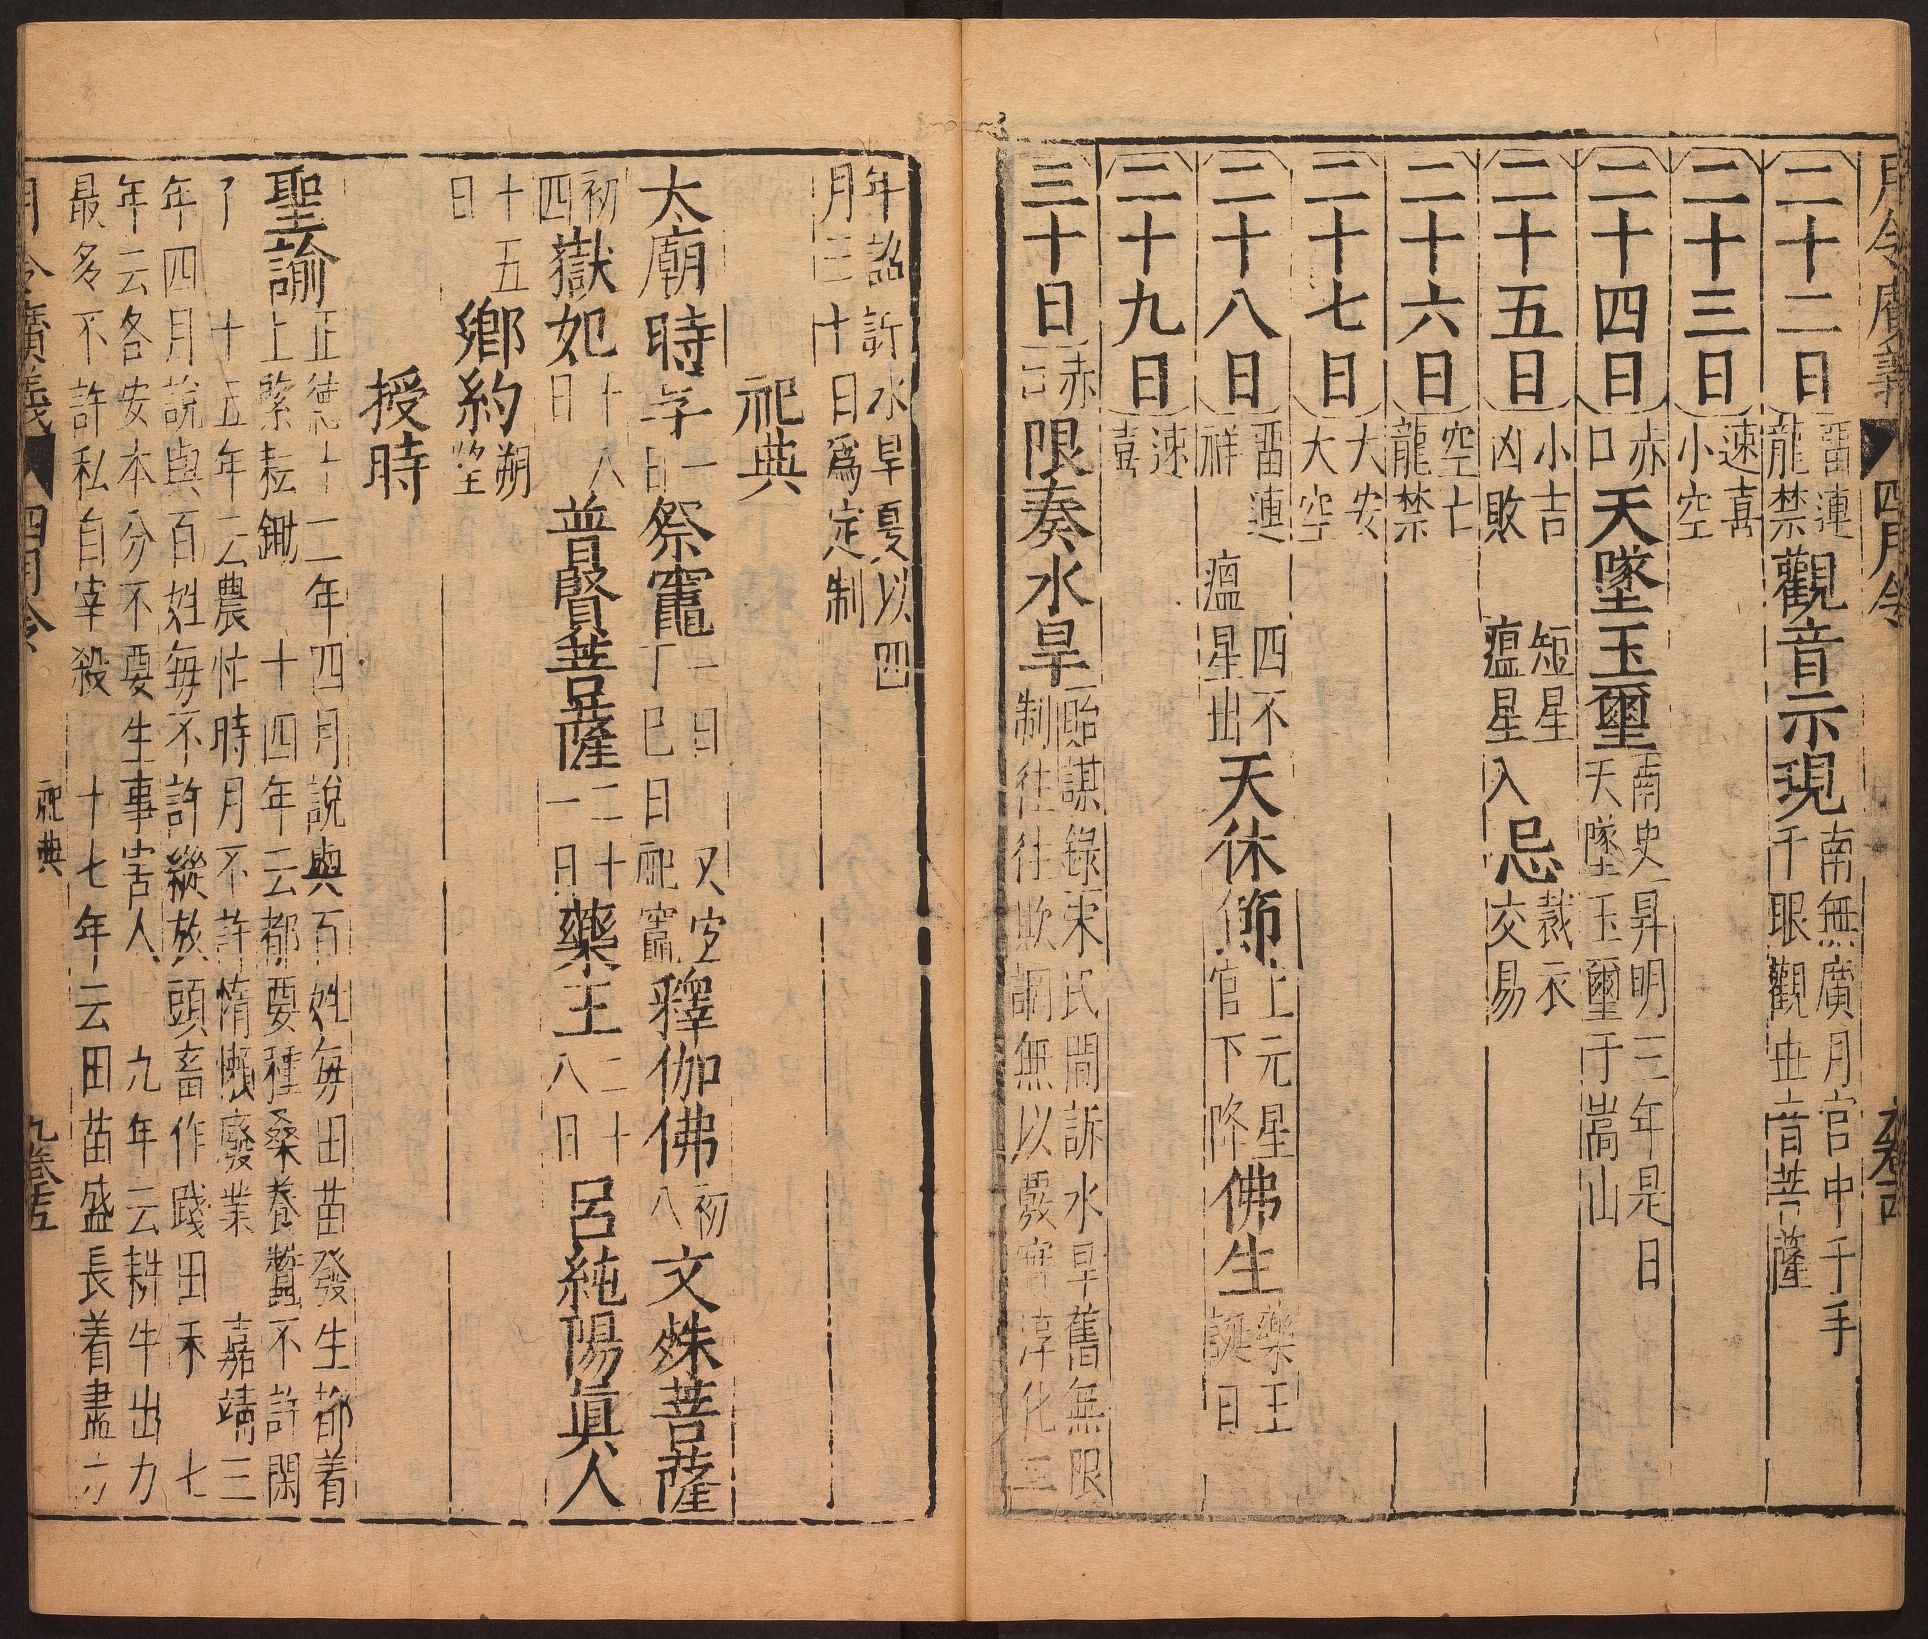 月令廣義 四月令
二十二日 畱連龍禁 觀音示現 南無廣月宮中千手千眼觀世音菩薩
二十三日 速喜小空
二十四日 赤口 天墜玉璽 南史昇明三年是日天墜玉璽于嵩山
二十五日 小吉凶敗 短星瘟星入 忌 裁衣交易
二十六日 空亡龍禁
二十七日 大安大空
二十八日 畱連祥 四不瘟星出 天休節 上元星官下降 佛生 藥王誕日
二十九日 速喜
三十日 赤口 限奏水旱 貽謀錄宋氏間訴水旱舊無限制往往欺調無以覈實淳化三
年詔許水旱夏以四月三十日爲定制
祀典
太廟時享 一日 祭竈 一日又定丁巳日祀竈 釋伽佛 初八 文殊菩薩
初四 獄如 十八日 普賢菩薩 二十一日 藥王 二十八日 呂純陽眞人
十五日 鄉約 朔望
授時
聖諭 正德十二年四月說與百姓每田苗發生都着上緊耘鋤 十四年云都要種桑養蠶不許閑
了 十五年云農忙時月不許惰懶廢業 嘉靖三年四月說與百姓每不許縱放頭畜作踐田禾 七
年云各安本分不要生事害人 九年云耕牛出力最多不許私自宰殺 十七年云田苗盛長着盡力
月令廣義 四月令 祀典 九卷